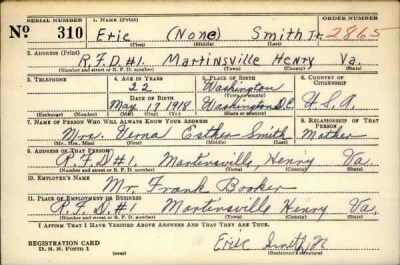 SERIAL NUMBER 1. NAME (Print) ORDER NUMBER
No 310 Eric (None) Smith Jr. 2865
(First) (Middle) (Last)
2. ADDRESS (Print)
R.F.D#1. Martinsville Henry Va.
(Number and street or R. F. D. number) (Town) (County) (State)
3. TELEPHONE 4. AGE IN YEARS 5. PLACE OF BIRTH 6. COUNTRY OF CITIZENSHIP
22 Washington
DATE OF BIRTH (Town or county)
May 17 1918 Washington D.C. U.S.A.
(Exchange) (Number) (Mo.) (Day) (Yr.) (State or country)
7. NAME OF PERSON WHO WILL ALWAYS KNOW YOUR ADDRESS 8. RELATIONSHIP OF THAT PERSON
Mrs. Verna Esther Smith Mother
(Mr., Mrs., Miss) (First) (Middle) (Last)
9. ADDRESS OF THAT PERSON
R.F.D#1. Martinsville, Henry Va.
(Number and street or R. F. D. number) (Town) (County) (State)
10. EMPLOYER'S NAME
Mr. Frank Booker
11. PLACE OF EMPLOYMENT OR BUSINESS
R.F.D.#1 Martinsville Henry Va.
(Number and street or R. F. D. number) (Town) (County) (State)
I AFFIRM THAT I HAVE VERIFIED ABOVE ANSWERS AND THAT THEY ARE TRUE.
Eric Smith Jr
REGISTRATION CARD
D. S. S. Form 1 (Registrant's signature)